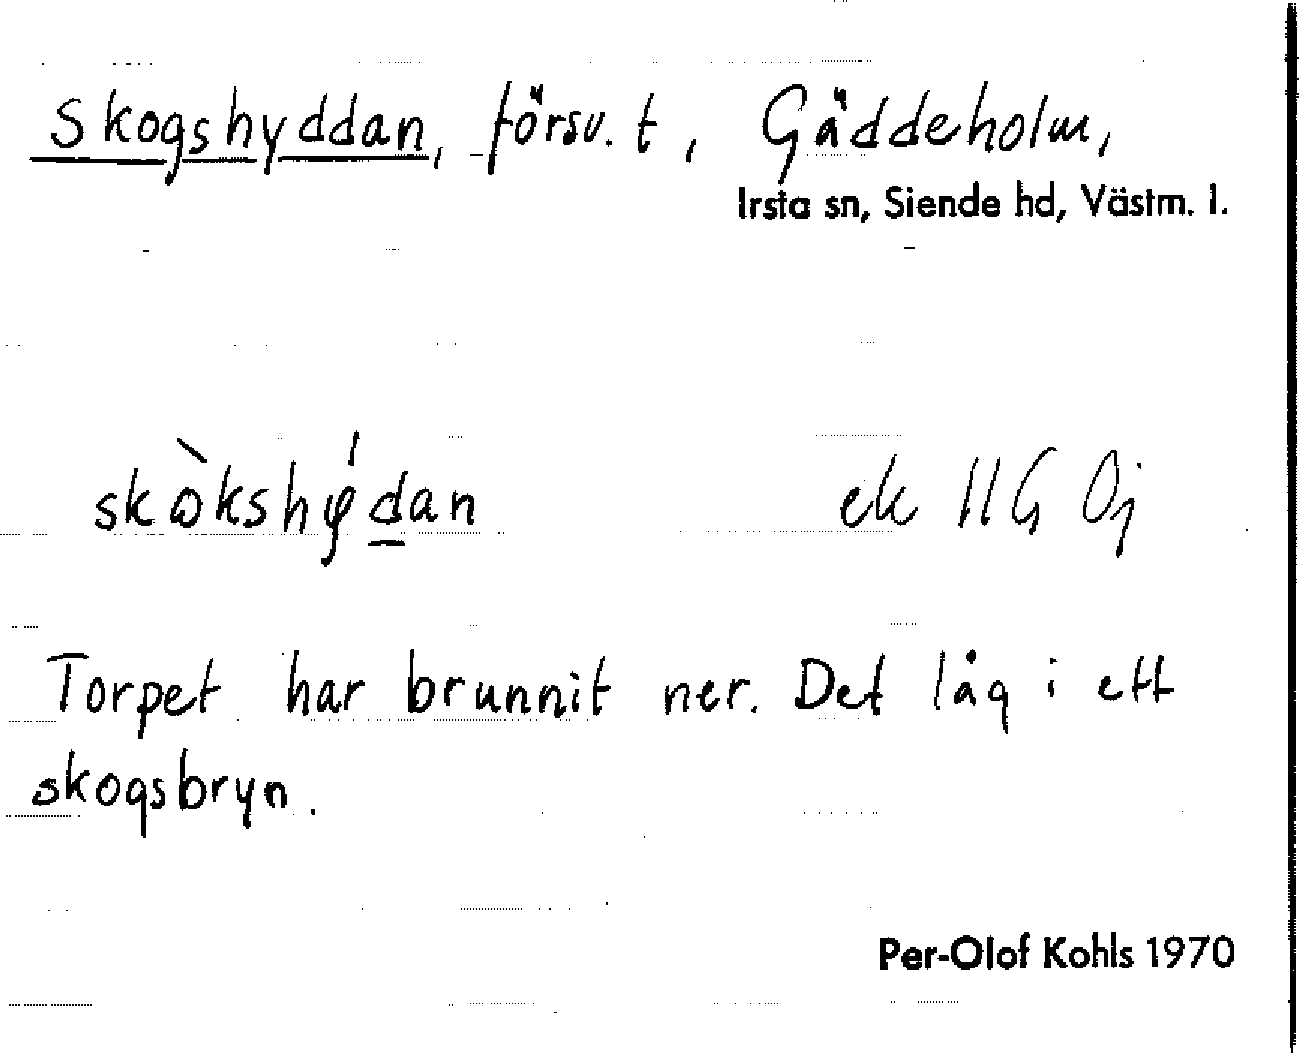 Skogshyddan, försv. t, Gäddeholm,
Irsta sn, Siende hd, Västm. l.
skòkshýdan ek HG Oj
Torpet har brunnit ner. Det låg i ett
skogsbryn.
Per-Olof Kohls 1970